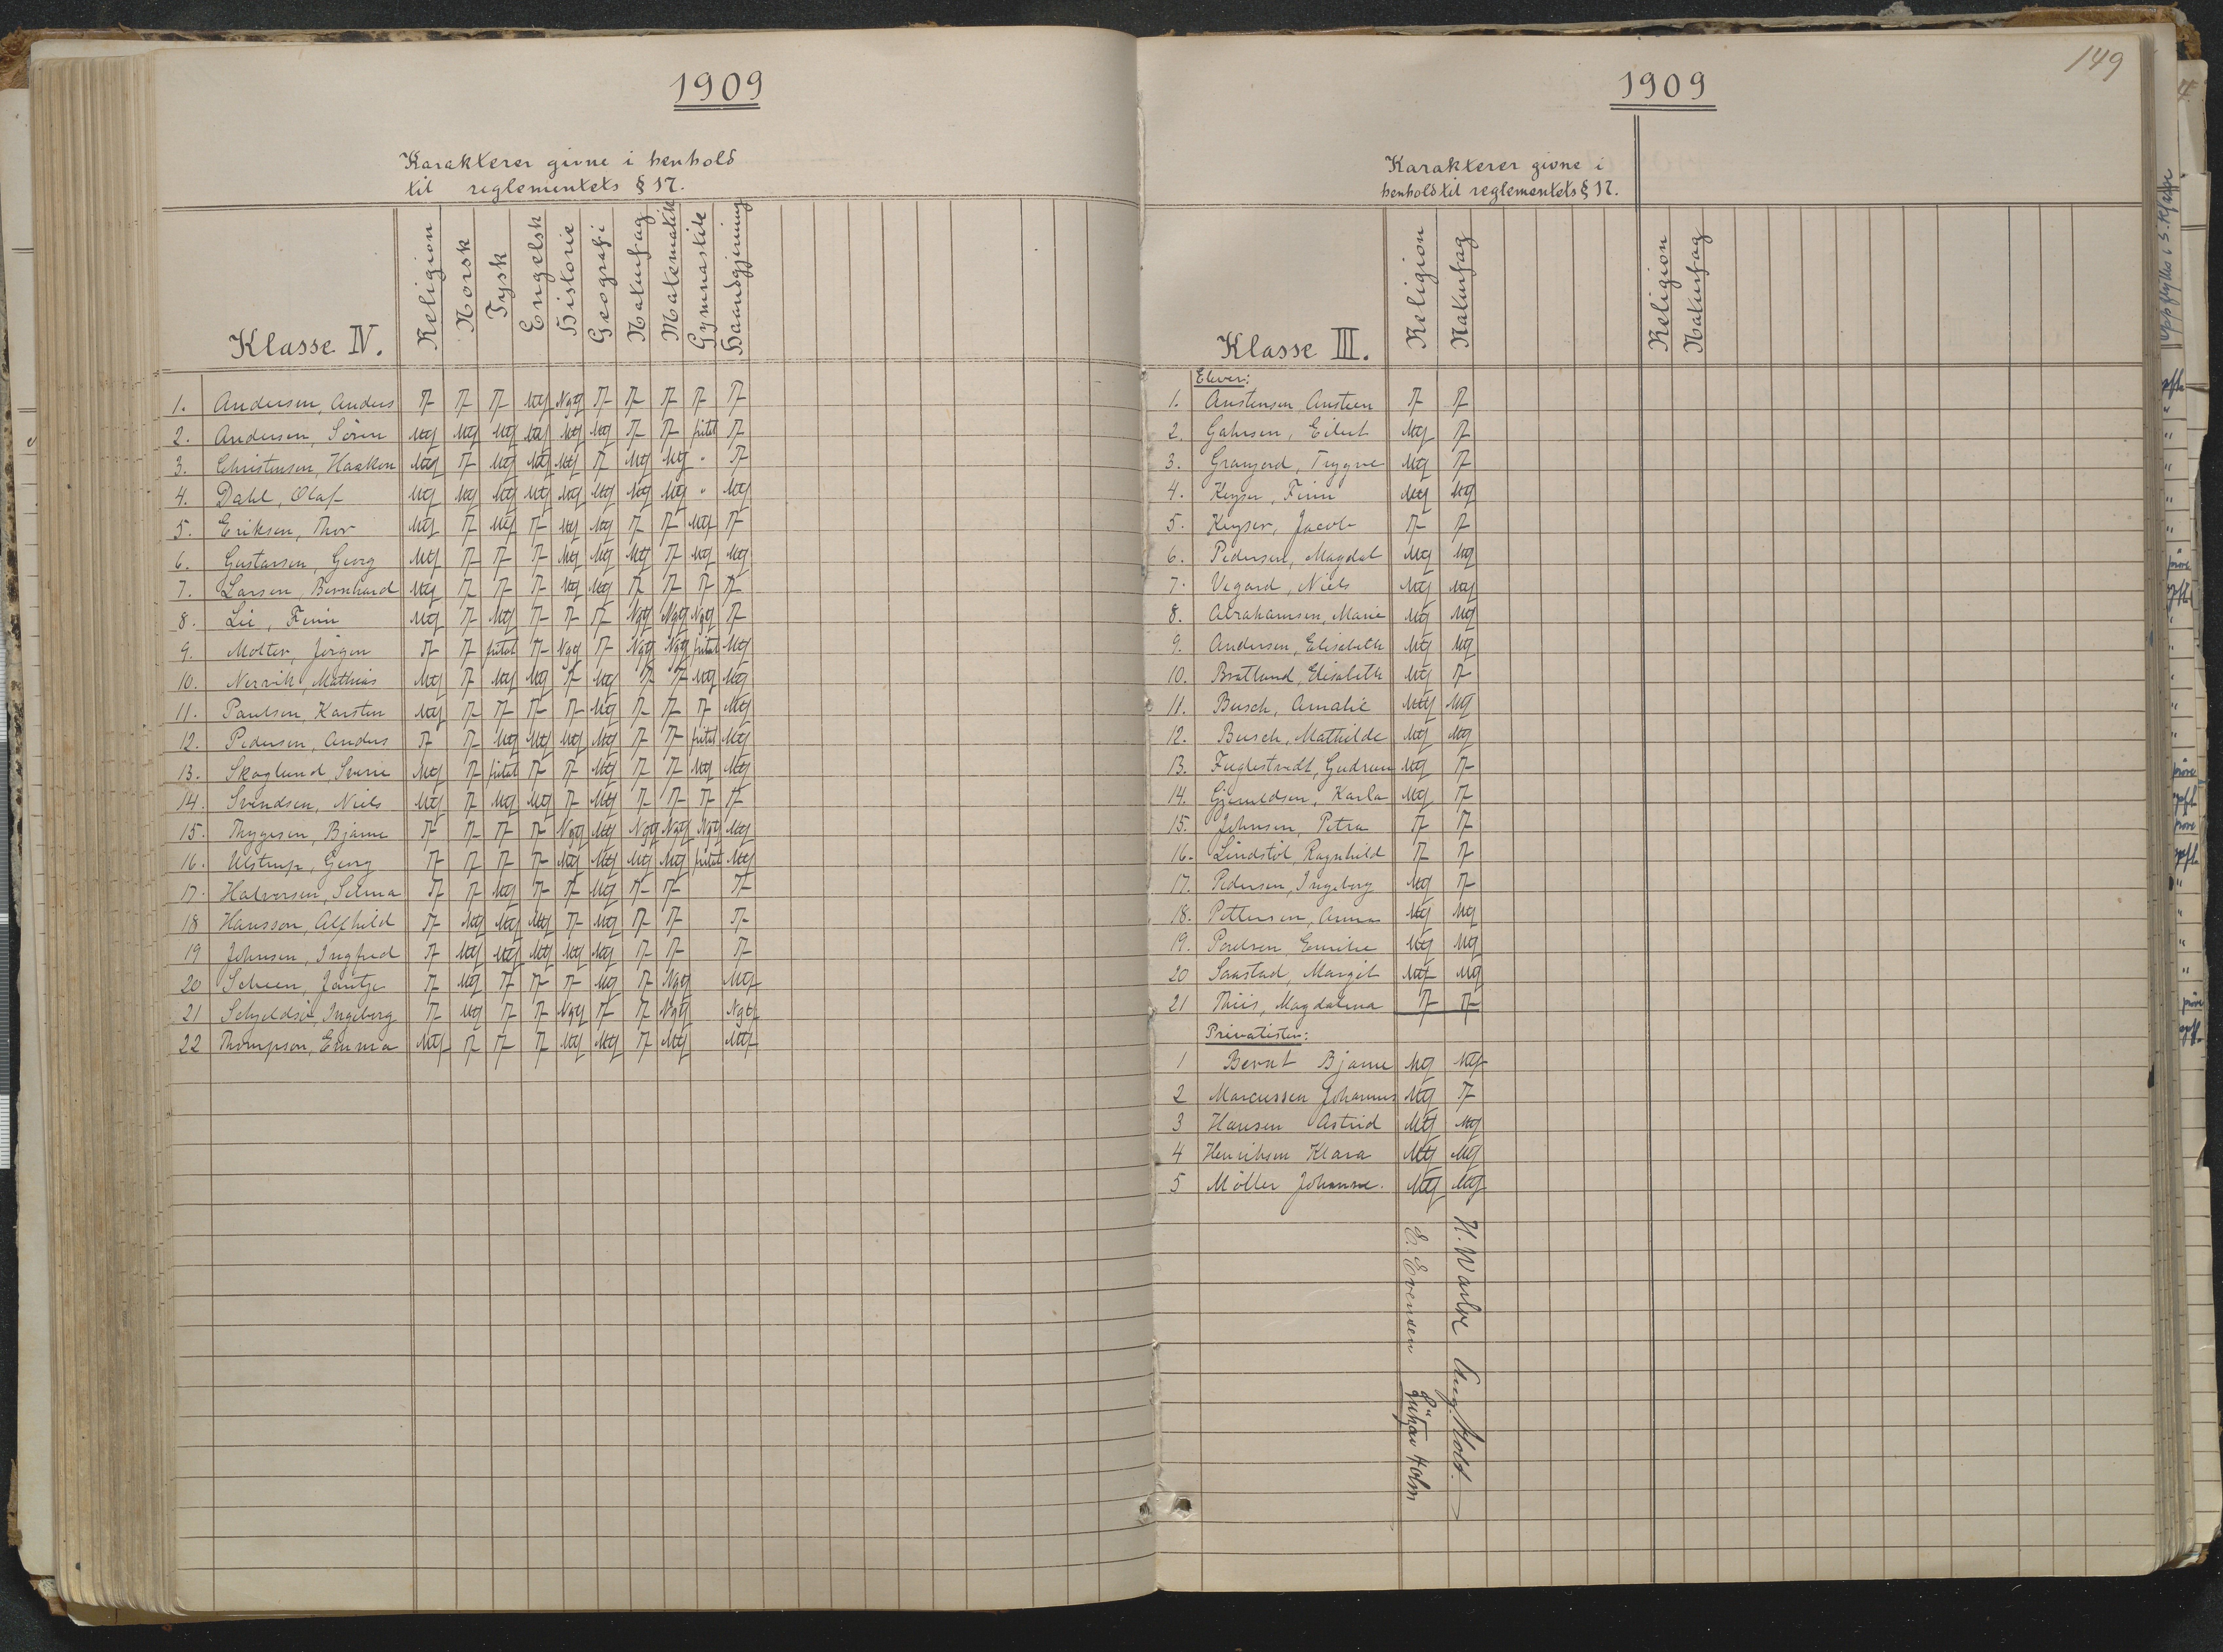 1909
Karakterer givne i henhold
til reglementets § 17.
Klasse IV. Religion Norsk Tysk Engelsk Historie Geografi Naturfag Matematik Gymnastik Haandgjerning
1. Andersen, Anders T T T Mtg Ngtg T T T T T
2. Andersen, Søren Mtg Mtg Mtg Mtg Mtg Mtg T T fritat T
3. Christensen, Haakon Mtg T Mtg Mtg Mtg T Mtg Mtg " T
4. Dahl, Olaf Mtg Mtg Mtg Mtg Mtg Mtg Mtg Mtg " Mtg
5. Eriksen, Thor Mtg T Mtg T Mtg Mtg T T Mtg T
6. Gustavsen, Georg Mtg T T T Mtg Mtg Mtg T Mtg Mtg
7. Larsen, Bernhard Mtg T T T Mtg Mtg T T T T
8. Lie, Finn Mtg T Mtg T T T Ngtg Ngtg Ngtg T
9. Molter, Jørgen T T fritat T Ngtg T Ngtg Ngtg fritat Mtg
10. Nervik, Mathias Mtg T Mtg Mtg T Mtg T T Mtg Mtg
11. Paulsen, Karsten Mtg T T T T Mtg T T T Mtg
12. Pedersen, Anders T T Mtg Mtg Mtg Mtg T T fritat Mtg
13. Skoglund, Sverre Mtg T fritat T T Mtg T T Mtg Mtg
14. Svendsen, Niels Mtg T Mtg Mtg T Mtg T T T T
15. Thygesen, Bjarne T T T T Ngtg Mtg Ngtg Ngtg Ngtg Mtg
16. Ulstrup, Georg T T T T Mtg Mtg Mtg Mtg fritat Mtg
17. Halvorsen, Selma T T Mtg T T Mtg T T T
18 Hansson, Alfhild T Mtg Mtg Mtg T Mtg T T T
19 Johnsen, Ingfred T Mtg Mtg Mtg Mtg Mtg T T T
20 Scheen, Jantje T Mtg T T T Mtg T Ngtg Mtg
21 Schjeldsø, Ingeborg T Mtg T T Ngtg T T Ngtg Ngtg
22 Thompson, Emma Mtg T T T Mtg Mtg T Mtg Mtg
149
1909
Karakterer givne i
henhold til reglementets § 17.
Klasse III. Religion Naturfag Religion Naturfag
Elever:
1. Austensen Austeen T T
2. Gahrsen, Eilert Mtg T
3. Granjord, Trygve Mtg T
4. Keyser, Finn Mtg Mtg
5. Keyser, Jacob T T
6. Pedersen, Magdal Mtg Mtg
7. Vegard, Niels Mtg Mtg
8. Abrahamsen, Marie Mtg Mtg
9. Andersen, Elisabeth Mtg Mtg
10. Brattland, Elisabeth Mtg T
11. Busch, Amalie Mtg Mtg
12. Busch, Mathilde Mtg Mtg
13. Fuglestvedt, Gudrun Mtg T
14. Gjeruldsen, Karla Mtg T
15. Johnsen, Petra T T
16. Lindstøl, Ragnhild T T
17. Pedersen, Ingeborg Mtg T
18. Pettersen, Anna Mtg Mtg
19. Poulsen Emilie Mtg Mtg
20 Saastad, Margit Mtg Mtg
21 Thiis, Magdalena T T
Privatister:
1 Bernt Bjarne Mtg Mtg
2 Marcussen Johannes Mtg T
3 Hansen Astrid Mtg Mtg
4 Henriksen Klara Mtg Mtg
5 Møller Johanne. Mtg Mtg
E. Evensen Gustav Holm
H. Warloe Aug. Holst.